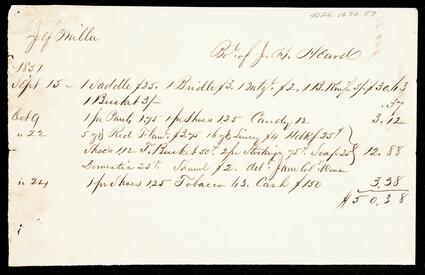 4026.1676.57
J G Miller
Bt. of J. H. Heard
1851
Sept 15 - 1 Saddle $25. 1 Bridle $3. 1 Mtg. $2. 1 B. Knife 3/- $30.63
1 Bucket 3/- .37
Oct 9 1 pr Pants 1.75 1 pr Shoes 1.25 Candy 12 3.12
" 22 5 yds Red Flan. $3.75 16 yds Linsey $4
Shoes 1.12 T. Bucket 50c 2 pr Stockings 75c Soap 25c 12.88
Domestic 25c Shawl $2. del.
" 24 1 pr Shoes 1.25 Tobacco 63. Cash $1.50 3.38
$50.38